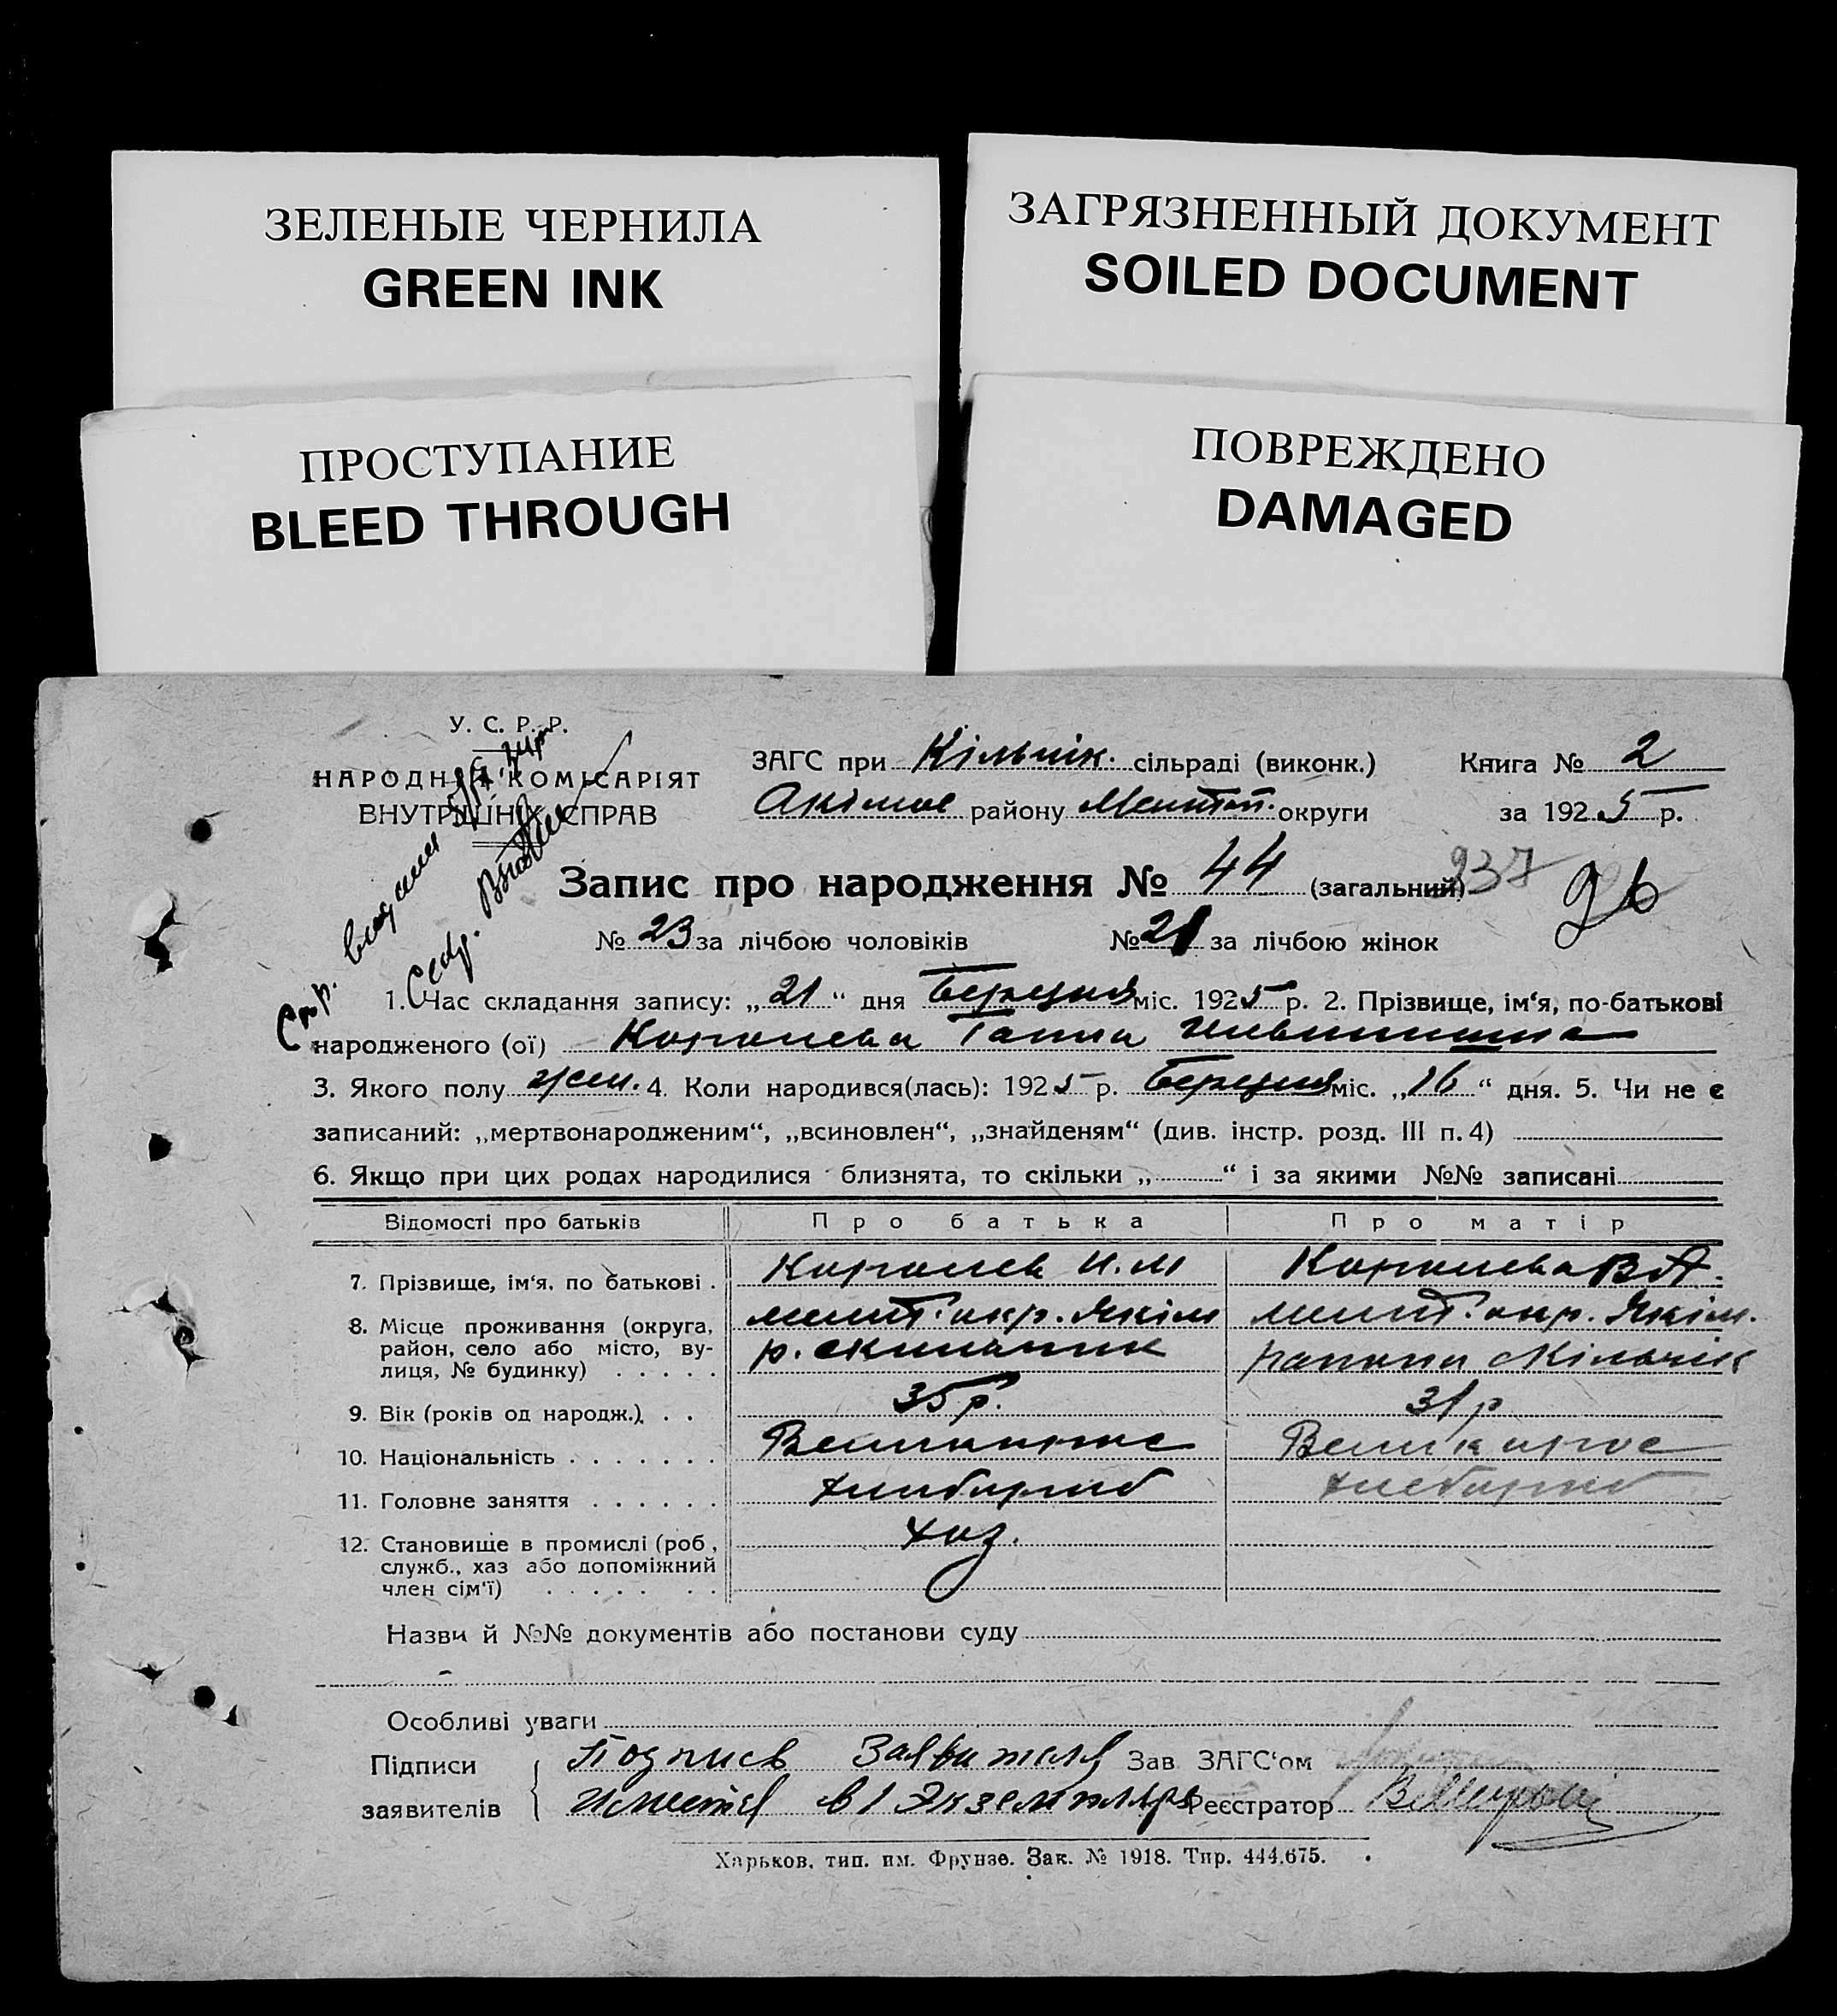 ЗЕЛЕНЫЕ ЧЕРНИЛА
GREEN INK
ЗАГРЯЗНЕННЫЙ ДОКУМЕНТ
SOILED DOCUMENT
ПРОСТУПАНИЕ
BLEED THROUGH
ПОВРЕЖДЕНО
DAMAGED
У. С. Р. Р.
НАРОДНИЙ КОМІСАРІЯТ
ВНУТРІШНІХ СПРАВ
ЗАГС при Кільчік. сільраді (виконк.) Книга № 2
Акімов району Мелітоп. округи за 1925 р.
Запис про народження № 44 (загальний) 237 26
№ 23 за лічбою чоловіків № 21 за лічбою жінок
1. Час складання запису: „21“ дня Березня міс. 1925 р. 2. Прізвище, ім'я, по-батькові
народженого (ої) Королева Ганна
3. Якого полу жен. 4. Коли народився(лась): 1925 р. Березня міс. „16“ дня. 5. Чи не є
записаний: „мертвонародженим“, „всиновлен“, „знайденям“ (див. інстр. розд. III п. 4)
6. Якщо при цих родах народилися близнята, то скільки „ “ і за якими №№ записані
Відомості про батьків Про батька Про матір
7. Прізвище, ім'я, по батькові . Королев И. М Королева В А.
8. Місце проживання (округа, мелит. окр. Якім мелит. окр. Якім.
район, село або місто, ву-
лиця, № будинку) . . . . .
9. Вік (років од народж.) . . 35 р. 31 р
10. Національність . . . . . . . Великорос Великорос
11. Головне заняття . . . . . . хлебороб хлебороб
12. Становище в промислі (роб., хоз.
служб., хаз або допоміжний
член сім'ї) . . . . . . .
Назви й №№ документів або постанови суду
Особливі уваги
Підписи Подпись Заявителя Зав ЗАГС'ом
заявителів Имеется в 1 Экземпляре Реєстратор
Харьков, тип. им. Фрунзе. Зак. № 1918. Тир. 444.675.